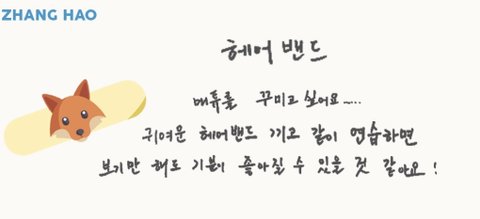 ZHANG HAO
헤어 밴드
매튜를 꾸미고 싶어요~...
귀여운 헤어밴드 끼고 같이 연습하면
보기만 해도 기분이 좋아질 수 있을 것 같아요!